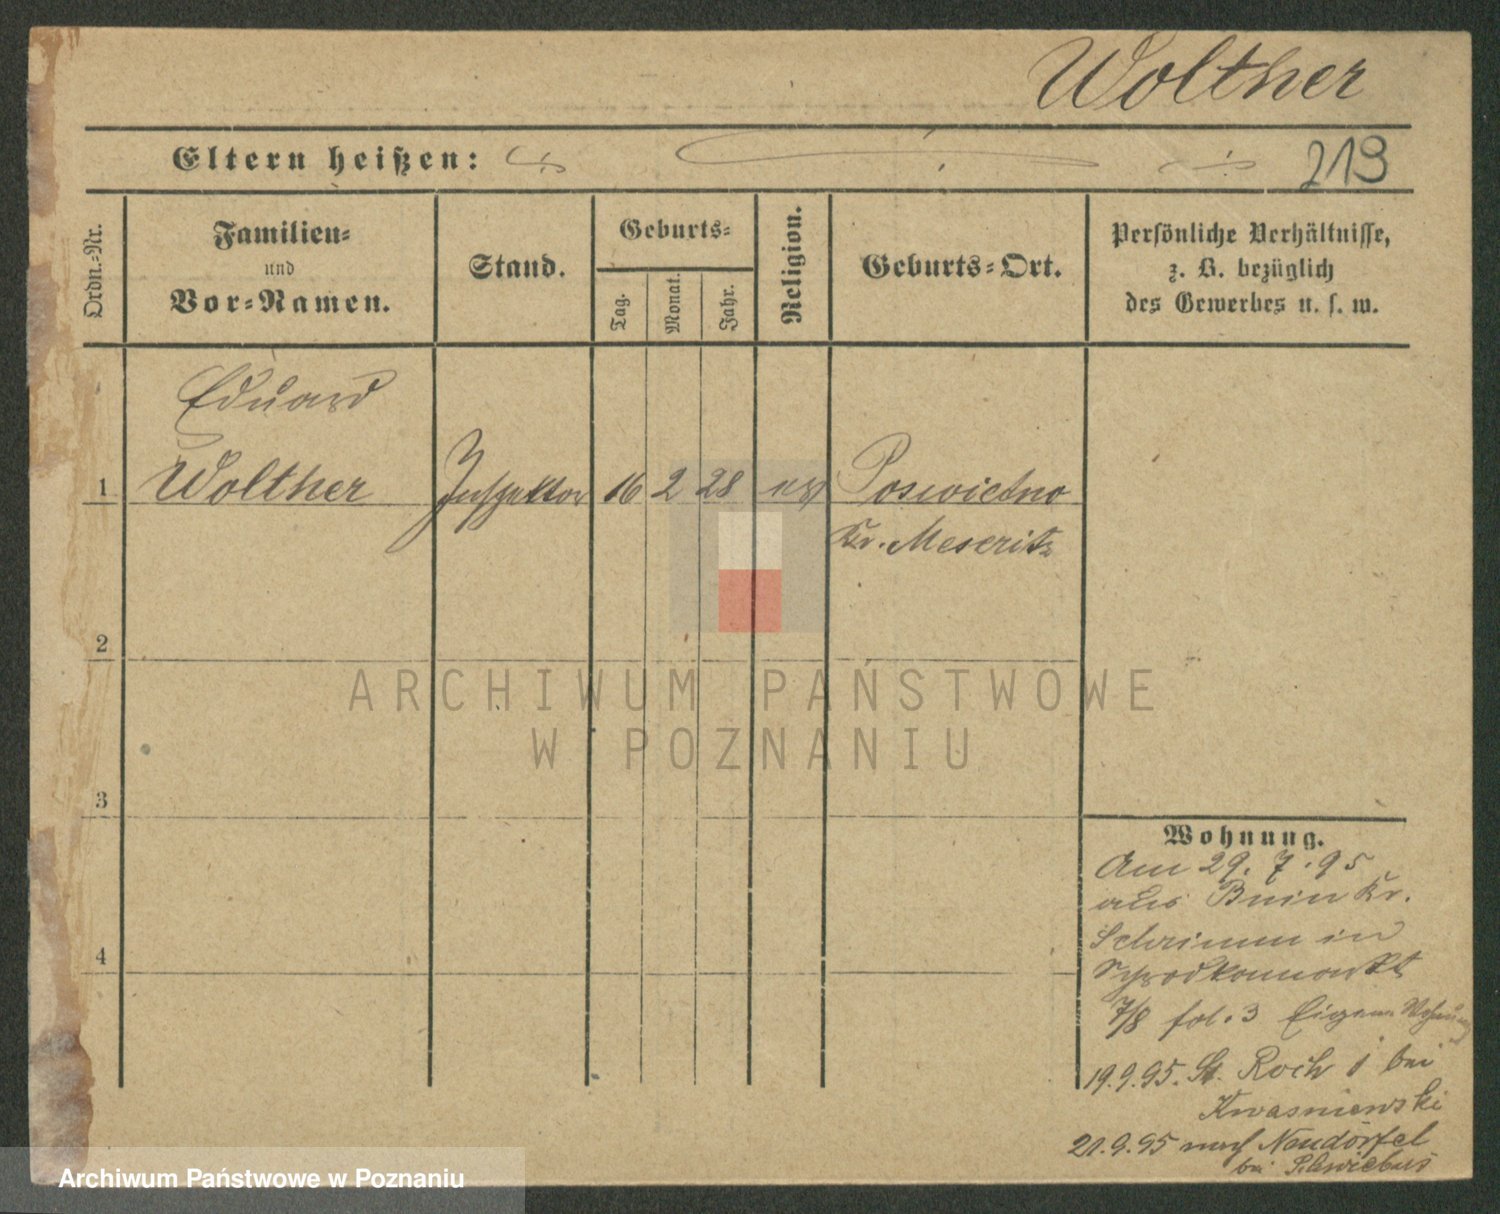 Wolther
Eltern heißen:
219
Ordn.-Nr.
Familien-
und
Vor-Namen.
Stand.
Geburts-
Tag.
Monat.
Jahr.
Religion.
Geburts-Ort.
Persönliche Verhältnisse,
z. B. bezüglich
des Gewerbes u. s. w.
Eduard
1 Wolther Inspektor 16 2 28 Poswietno
Kr. Meseritz
2
3
4
ARCHIWUM PAŃSTWOWE
W POZNANIU
Wohnung.
Am 29. 7. 95
aus Bnin Kr.
Schrimm in
Schrodkamarkt
7/8 fol. 3 Eigene Wohnung
19.9.95. St. Roch 1 bei
Kwasniewski
21.9.95 nach Neudörfel
bei Schwiebus
Archiwum Państwowe w Poznaniu